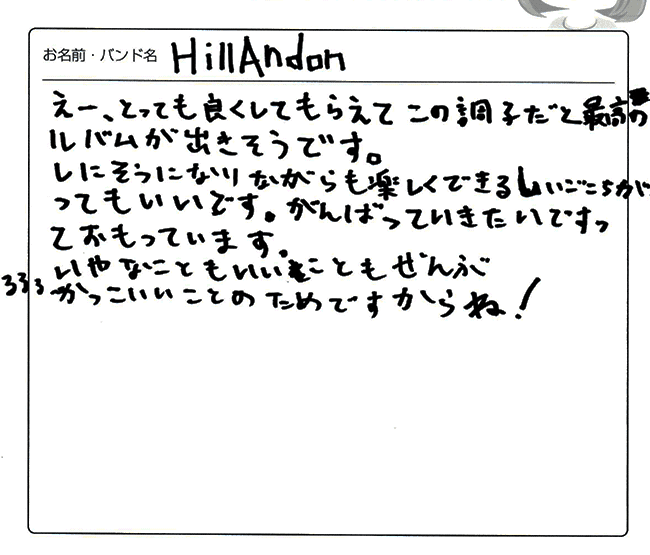 お名前・バンド名 HillAndon
えー、とっても良くしてもらえてこの調子だと最高の
ルバムが出きそうです。
しにそうになりながらも楽しくできるしいごこちが
ってもいいです。がんばっていきたいですっ
ておもっています。
いやなこともいいこともぜんぶ
かっこいいことのためですからね!